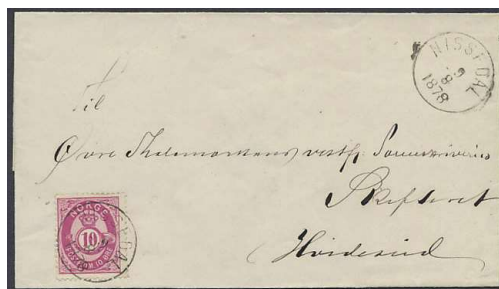 NISSEDAL
9 8
1878
Til
Øvre Thelemarkens vestf. Sorenskriveris
Skifteret
Hvideseid
NORGE
10